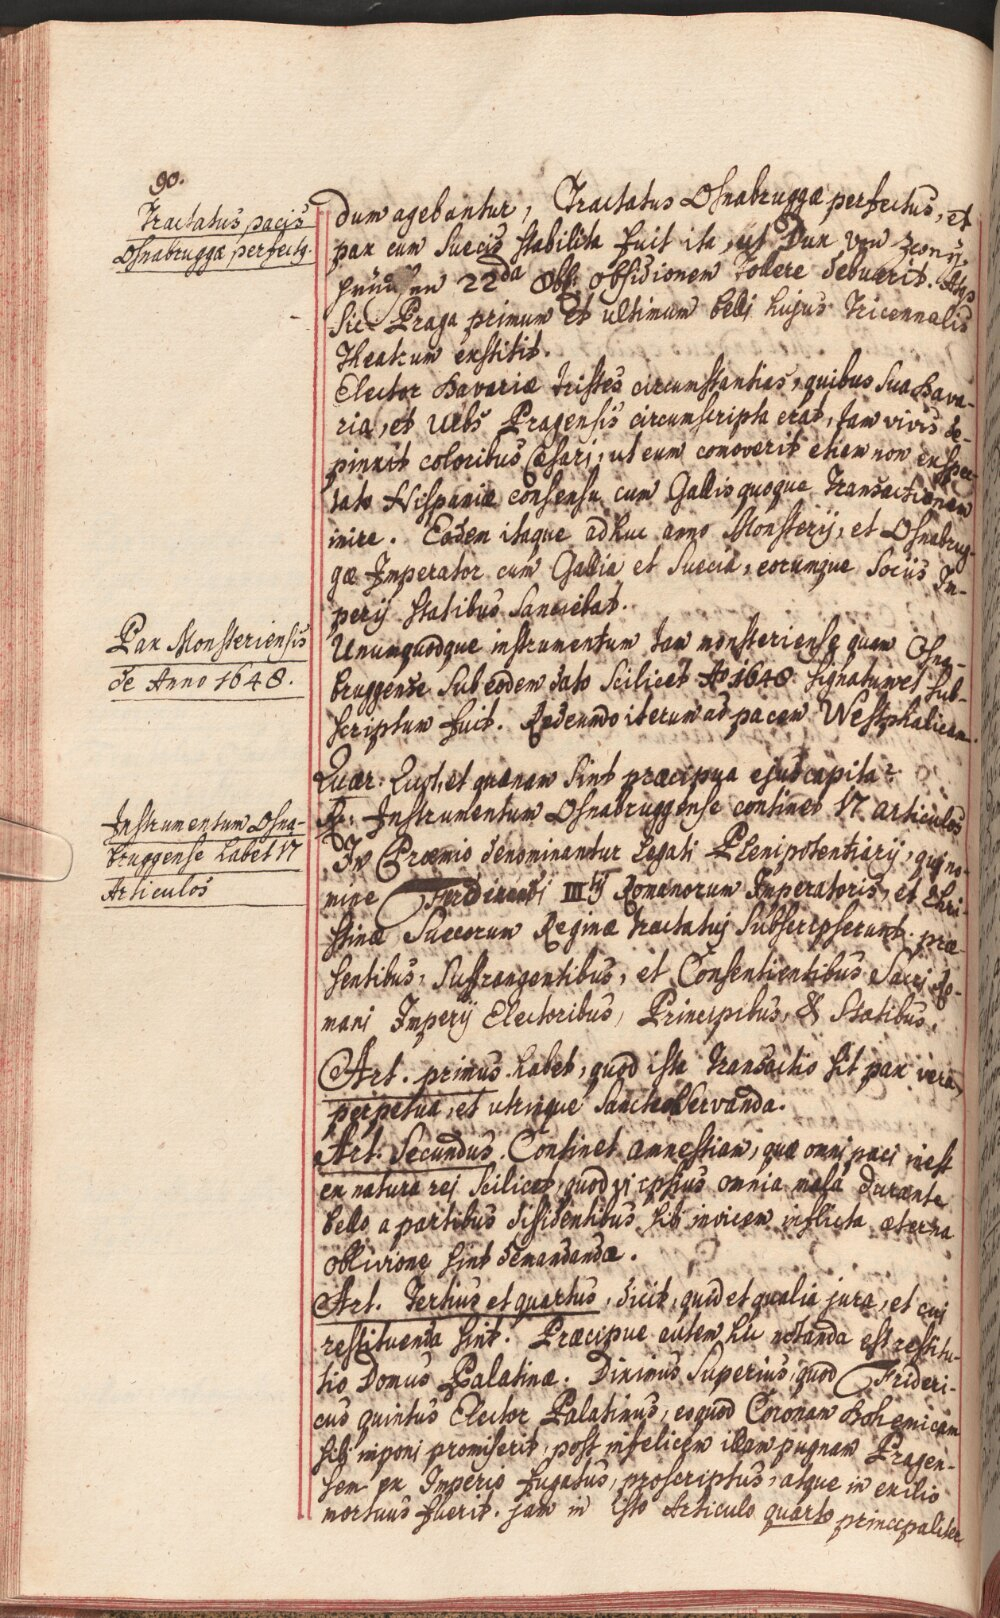 90.
Tractatus pacis
Osnabruggæ perfectg.
dum agebantur, Tractatus Osnabruggæ perfectus, et
pax cum Suecis stabilita fuit ita, ut Dux von
22da 8bris obsidionem Tollere debuerit. Atqs
sic Praga primum et ultimum belli hujus tricennalis
Theatrum exstitit.
Elector Bavariæ tristes circumstantias, quibus sua Bava-
ria, et Urbs Pragensis circumscripta erat, tam vivis de-
pinxit coloribus Cæsari, ut eum comoverit etiam non exspec-
tato Hispaniæ consensu cum Gallis quoque Transactionem
inire. Eodem itaque adhuc anno Monsterij, et Osnabrug-
gæ Imperator cum Gallia et Suecia, eorumque Sociis Im-
perij statibus sanciebat.
Pax Monsteriensis
de Anno 1648.
Unumquodque instrumentum tam monsteriense quam Osna-
bruggense sub eodem dato scilicet Ao 1648 signatum et sub-
scriptum fuit. Redeundo iterum ad pacem Westphalicam.
Quær: Quot, et quænam sint præcipua ejus capita?
Instrumentum Osna-
bruggense habet 17
Articulos
Rx: Instrumentum Osnabruggense continet 17 articulos
In Proemio denominantur Legati Plenipotentiarij, qui no-
mine Ferdinandi IIItij Romanorum Imperatoris, et Chri-
stinæ Suecorum Reginæ tractatuj subscripserunt. præ
sentibus, suffrangentibus, et Consentientibus Sacri Ro-
mani Imperij Electoribus, Principibus, & Statibus.
Art. primus habet, quod ista transactio sit pax vera,
perpetua, et utrinque sancte observanda.
Art. Secundus. Continet amnestiam, quæ omni paci inest
ex natura rej scilicet, quod vi ipsius omnia mala durante
bello a partibus dissidentibus sibi invicem inflicta æterna
oblivione sint demandandæ.
Art. Tertius et quartus, dicit, quid et qualia jura, et cui
restituenda sint. Præcipue autem hic notanda est restitu-
tio Domus Palatinæ. Diximus superius, quod Frideri-
cus quintus Elector Palatinus, eoquod Coronam Bohemicam
sibi imponi promiserit, post infelicem illam pugnam Pragen-
sem ex Imperio fugatus, proscriptus, atque in exilio
mortuus fuerit. jam in isto Articulo quarto principaliter